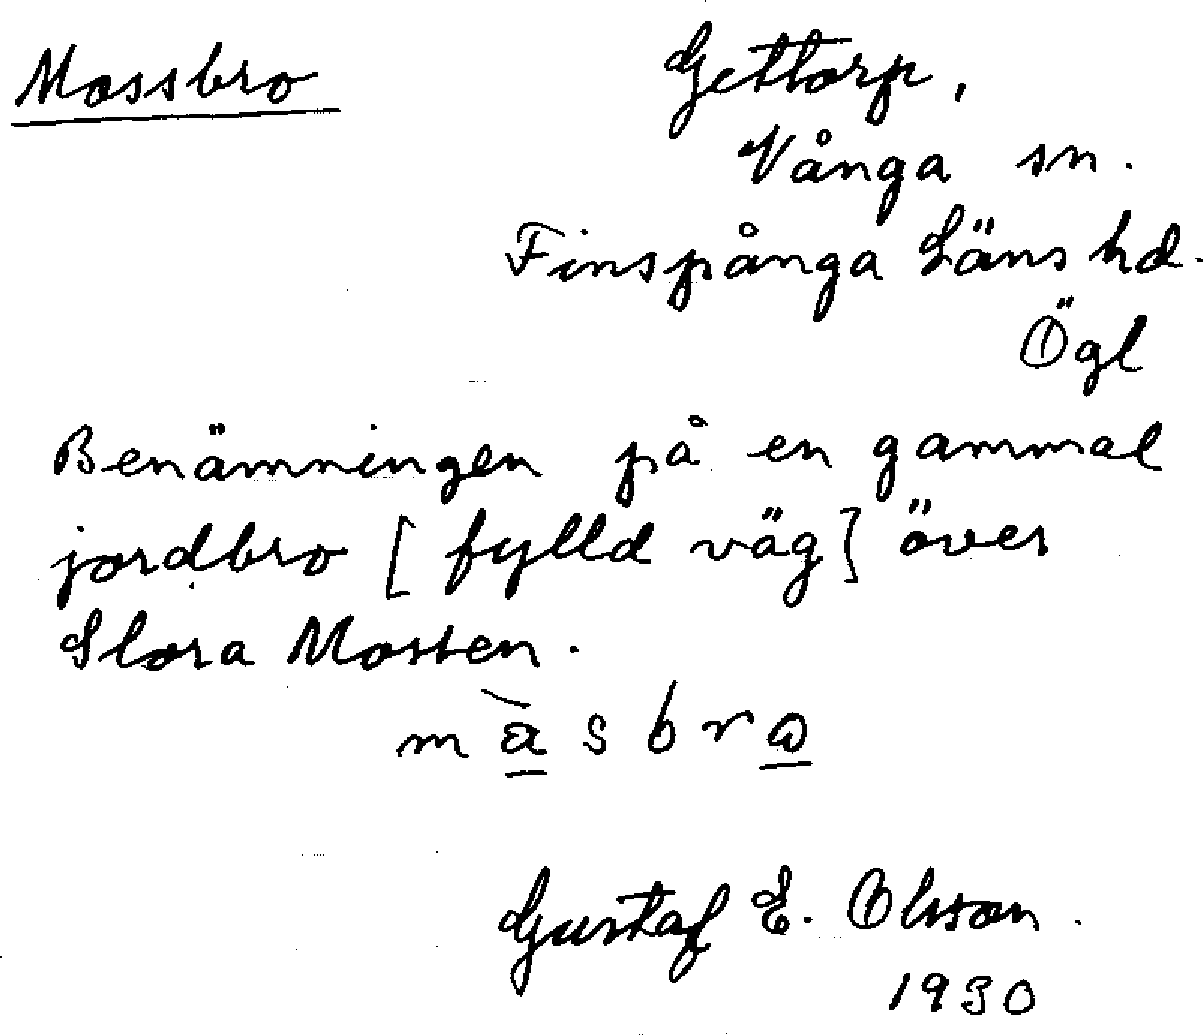 Mossbro
Gettorp,
Vånga sn.
Finspånga Läns hd.
Ögl
Benämningen på en gammal
jordbro [fylld väg] över
Stora Mossen.
m à s b r ω
Gustaf E. Olsson.
1930